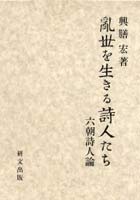 興膳 宏 著
亂世を生きる詩人たち
六朝詩人論
研文出版